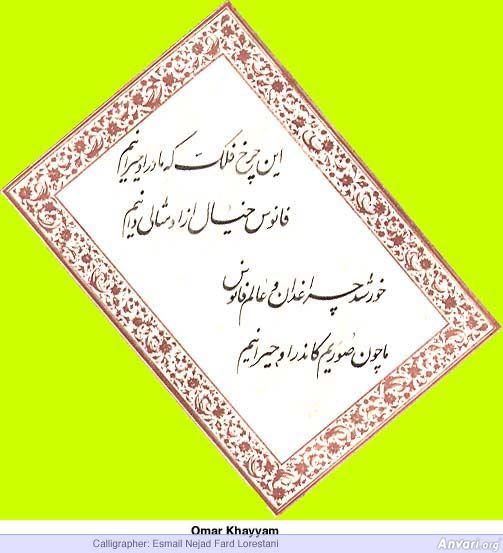 این چرخ فلک که ما در او حیرانیم
فانوس خیال از او مثالی دانیم
خورشید چراغدان و عالم فانوس
ما چون صوریم کاندر او حیرانیم
Omar Khayyam
Calligrapher: Esmail Nejad Fard Lorestani
Anvari.org